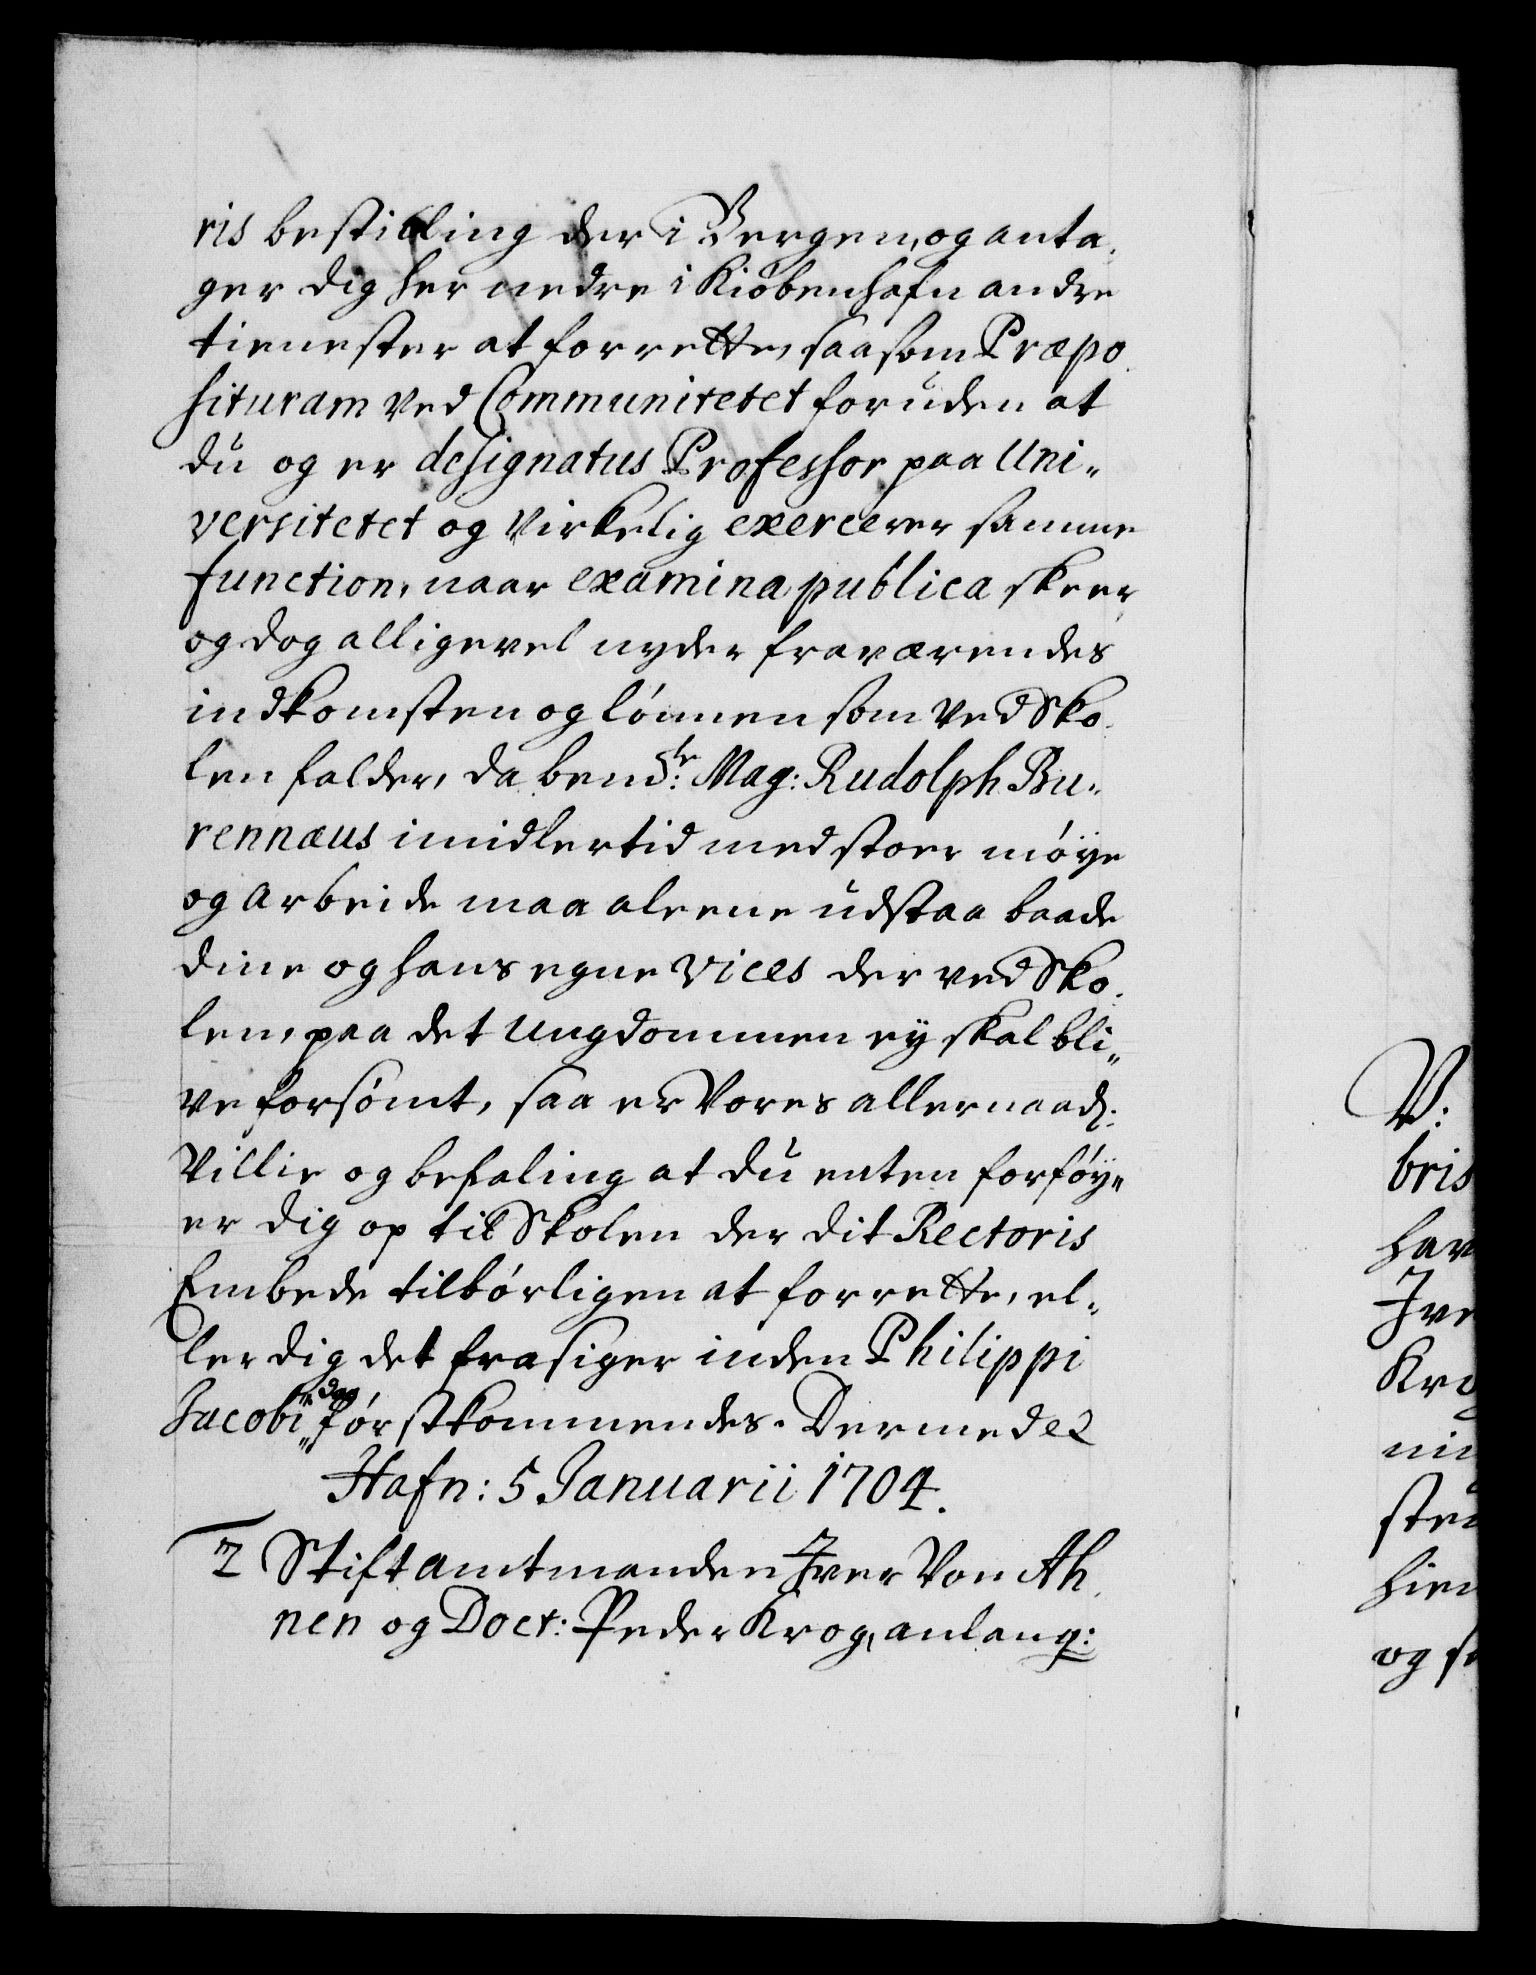 ris bestilling der i Bergen, og anta.
ger dig her nedre i Kiöbenhafn andre
tienester at forrette, saasom Præpo.
situram ved Communitetet foruden at
du og er designatus Professor paa Uni„
versitetet og virkelig exercerer samme
function, naar examina publica skeer
og dog alligevel nyder fraværendes
indkomsten og lónnen som ved Sko.
len falder, da bemte: Mag: Rudolph Bu„
rennæus imidlertid med stoer móÿe
og arbeide maa aleene udstaa baade
dine og hans egne vices der ved Sko.
len, paa det Ungdommen eÿ skal bli„
ve forsómt, saa er Vores allernaad:
Villie og befaling at du enten forföÿ„
er dig op til Skolen der dit Rectoris
Embede tilbórligen at forrette, el„
ler dig det frasiger inden Philippi
Jacobi„ dag fórstkommendes. Dermed ec
Hafn: 5 Januarii 1704.
2 Stiftamtmanden Iver Von Ah.
nen og Doct: Peder Krog, anlang:
V:
bris
har
Ive
Kro
stu
hien
og s